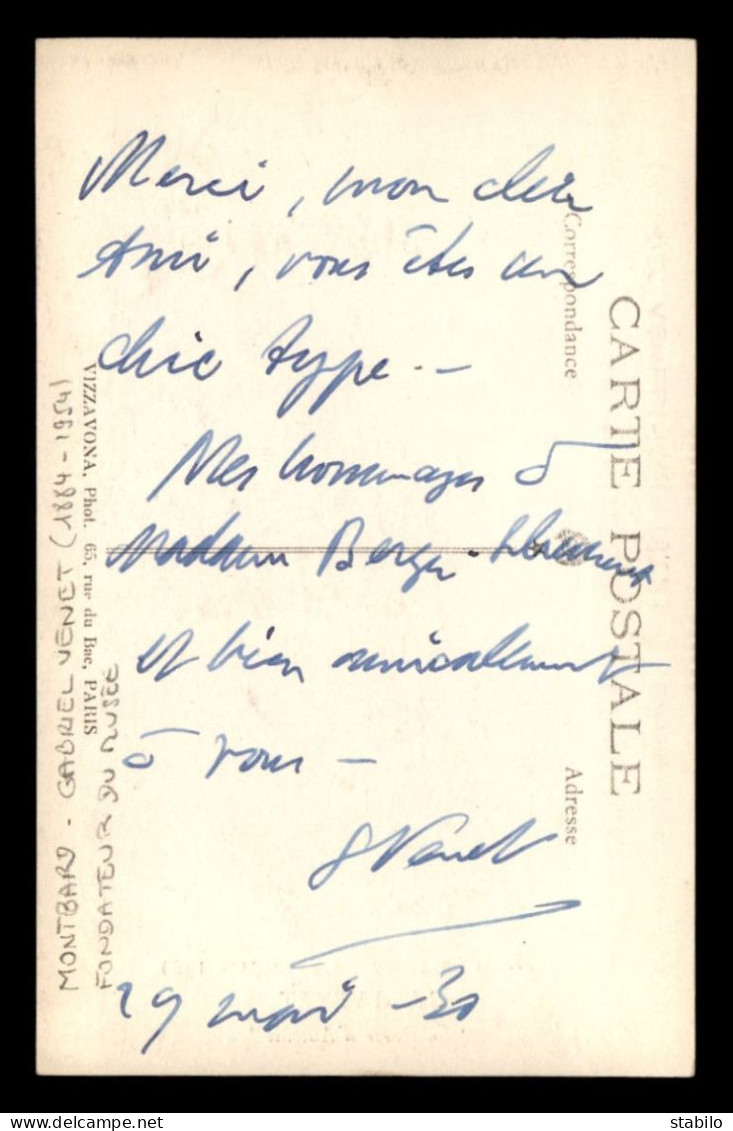 Merci, mon cher
Ami, vous êtes un
chic type. –
Mes hommages à
Madame Berger-
et bien amicalement
à vous –
G Venet
29 mai -30
CARTE POSTALE
Correspondance
Adresse
VIZZAVONA, Phot. 65, rue du Bac, PARIS
MONTBARD - GABRIEL VENET (1884-1954)
FONDATEUR DU MUSÉE
delcampe.net
stabilo